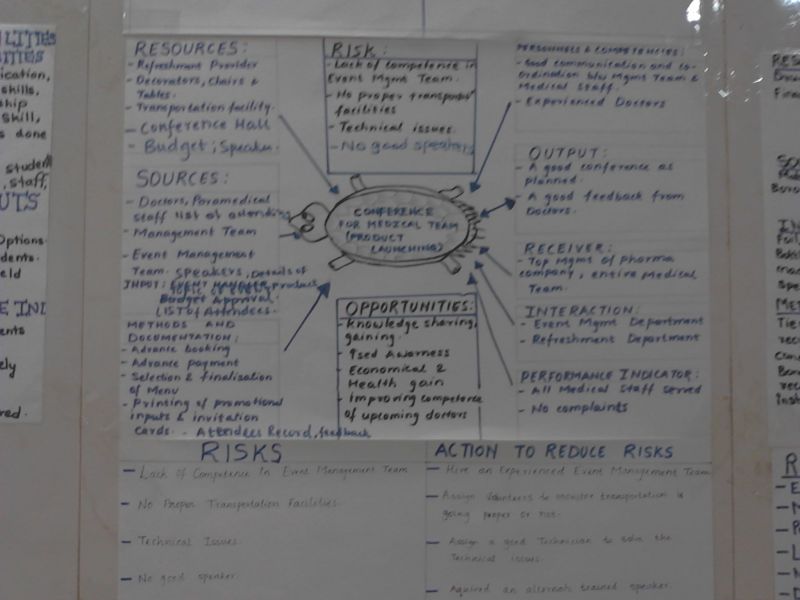 RESOURCES:
- Refreshment Provider
- Decorators, Chairs &
Tables.
- Transportation facility.
- Conference Hall
- Budget, Speaker.
SOURCES:
- Doctors, Paramedical
staff list of attending
- Management Team
- Event Management
Team. Speakers, Details of
INPUT: EVENT MANAGER, product
Budget Approval.
LIST OF Attendees.
METHODS AND
DOCUMENTATION:
- Advance booking
- Advance payment
- Selection & finalisation
of Menu
- Printing of promotional
inputs & invitation
Cards. - Attendees Record, feedback
RISK:
- Lack of competence in
Event Mgmt Team.
- No proper transport
facilities
- Technical issues.
- No good speakers
CONFERENCE
FOR MEDICAL TEAM
(PRODUCT
LAUNCHING)
OPPORTUNITIES:
- Knowledge sharing,
gaining.
- ↑sed Awarness
- Economical &
Health gain
- Improving competence
of upcoming doctors
PERSONNELS & COMPETENCIES:
- Good communication and co-
ordination b/w Mgmt Team &
Medical staff.
- Experienced Doctors
OUTPUT:
- A good conference as
planned.
- A good feedback from
Doctors.
RECEIVER:
- Top Mgms of pharma
company, entire Medical
Team.
INTERACTION:
- Event Mgmt Department
- Refreshment Department
PERFORMANCE INDICATOR:
- All Medical Staff served
- No complaints
RISKS
- Lack of Competence In Event Management Team
- No Proper Transportation Facilities.
- Technical Issues.
- No good speaker.
ACTION TO REDUCE RISKS
- Hire an Experienced Event Management Team
- Assign Volunteers to monitor transportation is
going proper or not.
- Assign a good Technician to solve the
Technical issues.
- Aquired an alternate trained speaker.